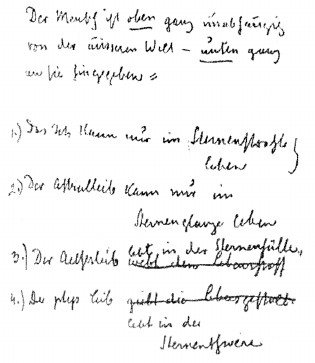 Der Mensch ist oben ganz unabhängig
von der äusseren Welt – unten ganz
an sie hingegeben =
1.) Das Ich kann nur im Sternenstrahl
leben
2.) Der Astralleib kann nur im
Sternenglanze leben
3.) Der Aetherleib lebt in der Sternenfülle
webt den Lebensstoff
4.) Der phys Leib
lebt in der
Sternenschwere